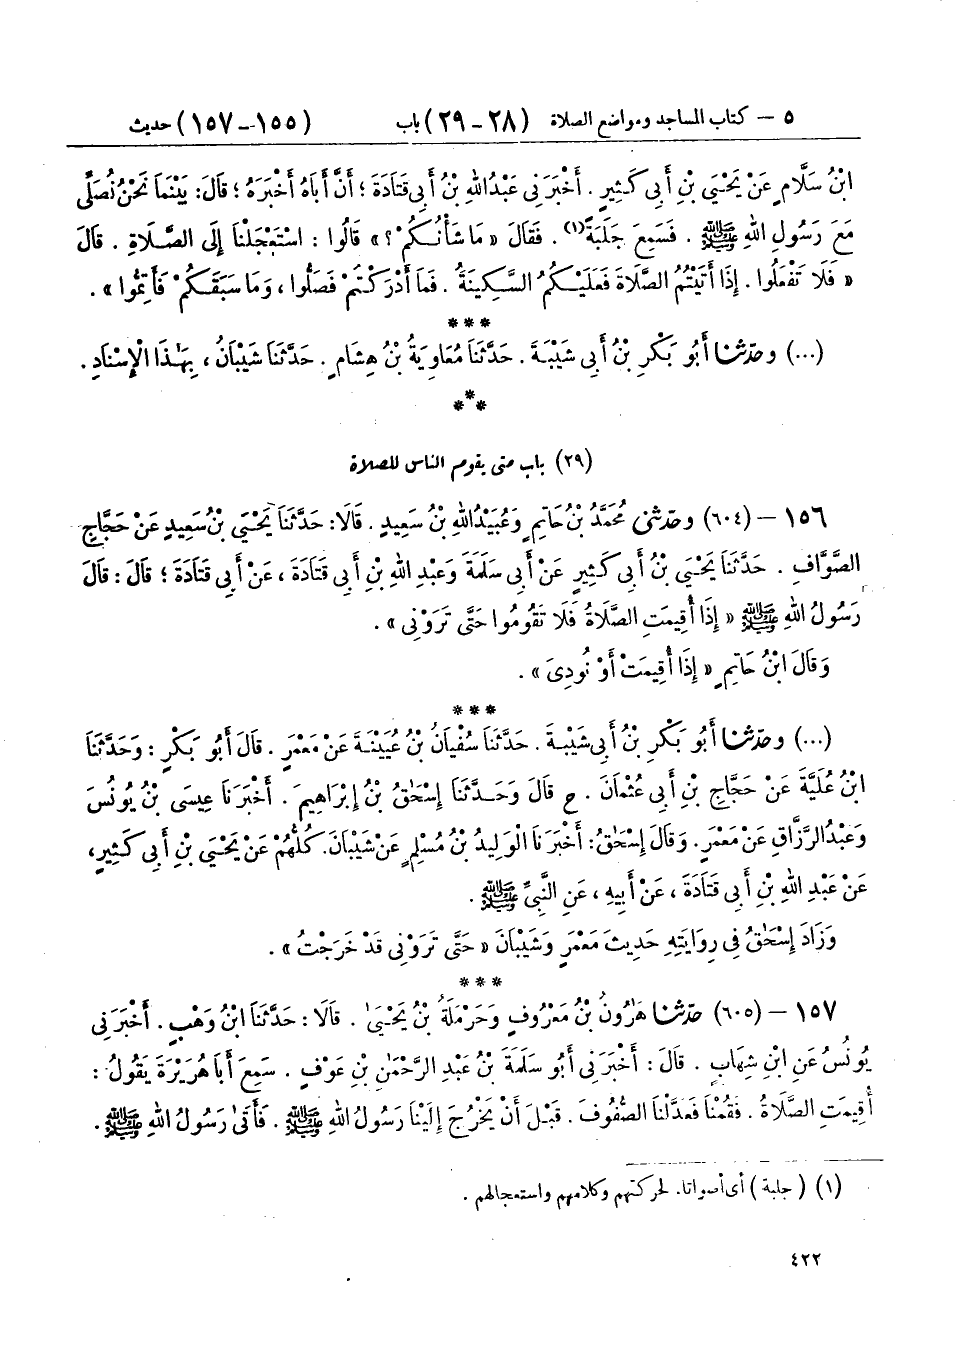 ٥ – كتاب المساجد ومواضع الصلاة (٢٨-٢٩) باب (١٥٥-١٥٧) حديث
ابْنُ سَلَّامٍ عَنْ يَحْيَىٰ بْنِ أَبِى كَثِيرٍ . أَخْبَرَنِى عَبْدُ اللهِ بْنُ أَبِى قَتَادَةَ ؛ أَنَّ أَبَاهُ أَخْبَرَهُ ؛ قَالَ: بَيْنَمَا نَحْنُ نُصَلِّى
مَعَ رَسُولِ اللهِ ﷺ . فَسَمِعَ جَلَبَةً(١) . فَقَالَ « مَا شَأْنُكُمْ ؟ » قَالُوا : اسْتَعْجَلْنَا إِلَى الصَّلَاةِ . قَالَ
« فَلَا تَفْعَلُوا . إِذَا أَتَيْتُمُ الصَّلَاةَ فَعَلَيْكُمُ السَّكِينَةُ . فَمَا أَدْرَكْتُمْ فَصَلُّوا ، وَمَا سَبَقَكُمْ فَأَتِمُّوا » .
***
(...) وحَدَّثَنَا أَبُو بَكْرِ بْنُ أَبِى شَيْبَةَ . حَدَّثَنَا مُعَاوِيَةُ بْنُ هِشَامٍ . حَدَّثَنَا شَيْبَانُ ، بِهَٰذَا الْإِسْنَادِ .
***
(٢٩) باب متى يقوم الناس للصلاة
١٥٦ – (٦٠٤) وحَدَّثَنِى مُحَمَّدُ بْنُ حَاتِمٍ وَعُبَيْدُ اللهِ بْنُ سَعِيدٍ . قَالَا: حَدَّثَنَا يَحْيَىٰ بْنُ سَعِيدٍ عَنْ حَجَّاجٍ
الصَّوَّافِ . حَدَّثَنَا يَحْيَىٰ بْنُ أَبِى كَثِيرٍ عَنْ أَبِى سَلَمَةَ وَعَبْدِ اللهِ بْنِ أَبِى قَتَادَةَ ، عَنْ أَبِى قَتَادَةَ ؛ قَالَ : قَالَ
رَسُولُ اللهِ ﷺ « إِذَا أُقِيمَتِ الصَّلَاةُ فَلَا تَقُومُوا حَتَّىٰ تَرَوْنِى » .
وَقَالَ ابْنُ حَاتِمٍ « إِذَا أُقِيمَتْ أَوْ نُودِىَ » .
***
(...) وحَدَّثَنَا أَبُو بَكْرِ بْنُ أَبِى شَيْبَةَ . حَدَّثَنَا سُفْيَانُ بْنُ عُيَيْنَةَ عَنْ مَعْمَرٍ . قَالَ أَبُو بَكْرٍ : وَحَدَّثَنَا
ابْنُ عُلَيَّةَ عَنْ حَجَّاجِ بْنِ أَبِى عُثْمَانَ . ح قَالَ وَحَدَّثَنَا إِسْحَٰقُ بْنُ إِبْرَاهِيمَ . أَخْبَرَنَا عِيسَى بْنُ يُونُسَ
وَعَبْدُ الرَّزَّاقِ عَنْ مَعْمَرٍ. وَقَالَ إِسْحَٰقُ: أَخْبَرَنَا الْوَلِيدُ بْنُ مُسْلِمٍ عَنْ شَيْبَانَ. كُلُّهُمْ عَنْ يَحْيَىٰ بْنِ أَبِى كَثِيرٍ،
عَنْ عَبْدِ اللهِ بْنِ أَبِى قَتَادَةَ ، عَنْ أَبِيهِ ، عَنِ النَّبِيِّ ﷺ .
وَزَادَ إِسْحَٰقُ فِى رِوَايَتِهِ حَدِيثَ مَعْمَرٍ وَشَيْبَانَ « حَتَّىٰ تَرَوْنِى قَدْ خَرَجْتُ » .
***
١٥٧ – (٦٠٥) حَدَّثَنَا هَٰرُونُ بْنُ مَعْرُوفٍ وَحَرْمَلَةُ بْنُ يَحْيَىٰ . قَالَا : حَدَّثَنَا ابْنُ وَهْبٍ . أَخْبَرَنِى
يُونُسُ عَنِ ابْنِ شِهَابٍ . قَالَ : أَخْبَرَنِى أَبُو سَلَمَةَ بْنُ عَبْدِ الرَّحْمَٰنِ بْنِ عَوْفٍ . سَمِعَ أَبَا هُرَيْرَةَ يَقُولُ :
أُقِيمَتِ الصَّلَاةُ . فَقُمْنَا فَعَدَّلْنَا الصُّفُوفَ . قَبْلَ أَنْ يَخْرُجَ إِلَيْنَا رَسُولُ اللهِ ﷺ . فَأَتَىٰ رَسُولُ اللهِ ﷺ .
(١) ( جلبة ) أى أصواتا. لحركتهم وكلامهم واستعجالهم .
٤٢٢